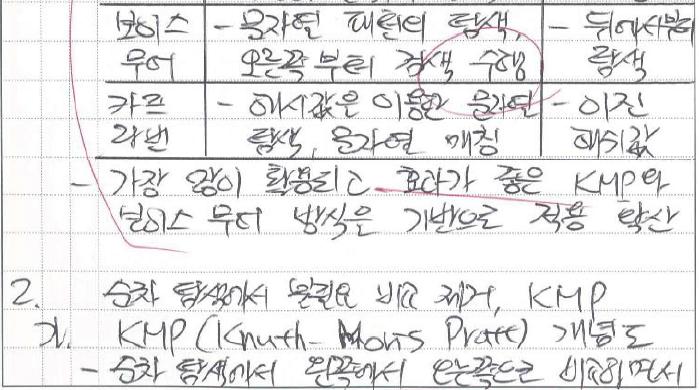 보이스 - 문자열 패턴의 탐색 - 뒤에서부터
무어 오른쪽부터 검색 수행 탐색
카프 - 해시값을 이용한 문자열 - 이진
라번 탐색, 문자열 매칭 해쉬값
- 가장 많이 활용되고 효과가 좋은 KMP와
보이스 무어 방식을 기반으로 적용 확산
2. 순차 탐색에서 불필요 비교 제거, KMP
가. KMP(Knuth-Morris Pratt) 개념도
- 순차 탐색에서 왼쪽에서 오른쪽으로 비교하면서